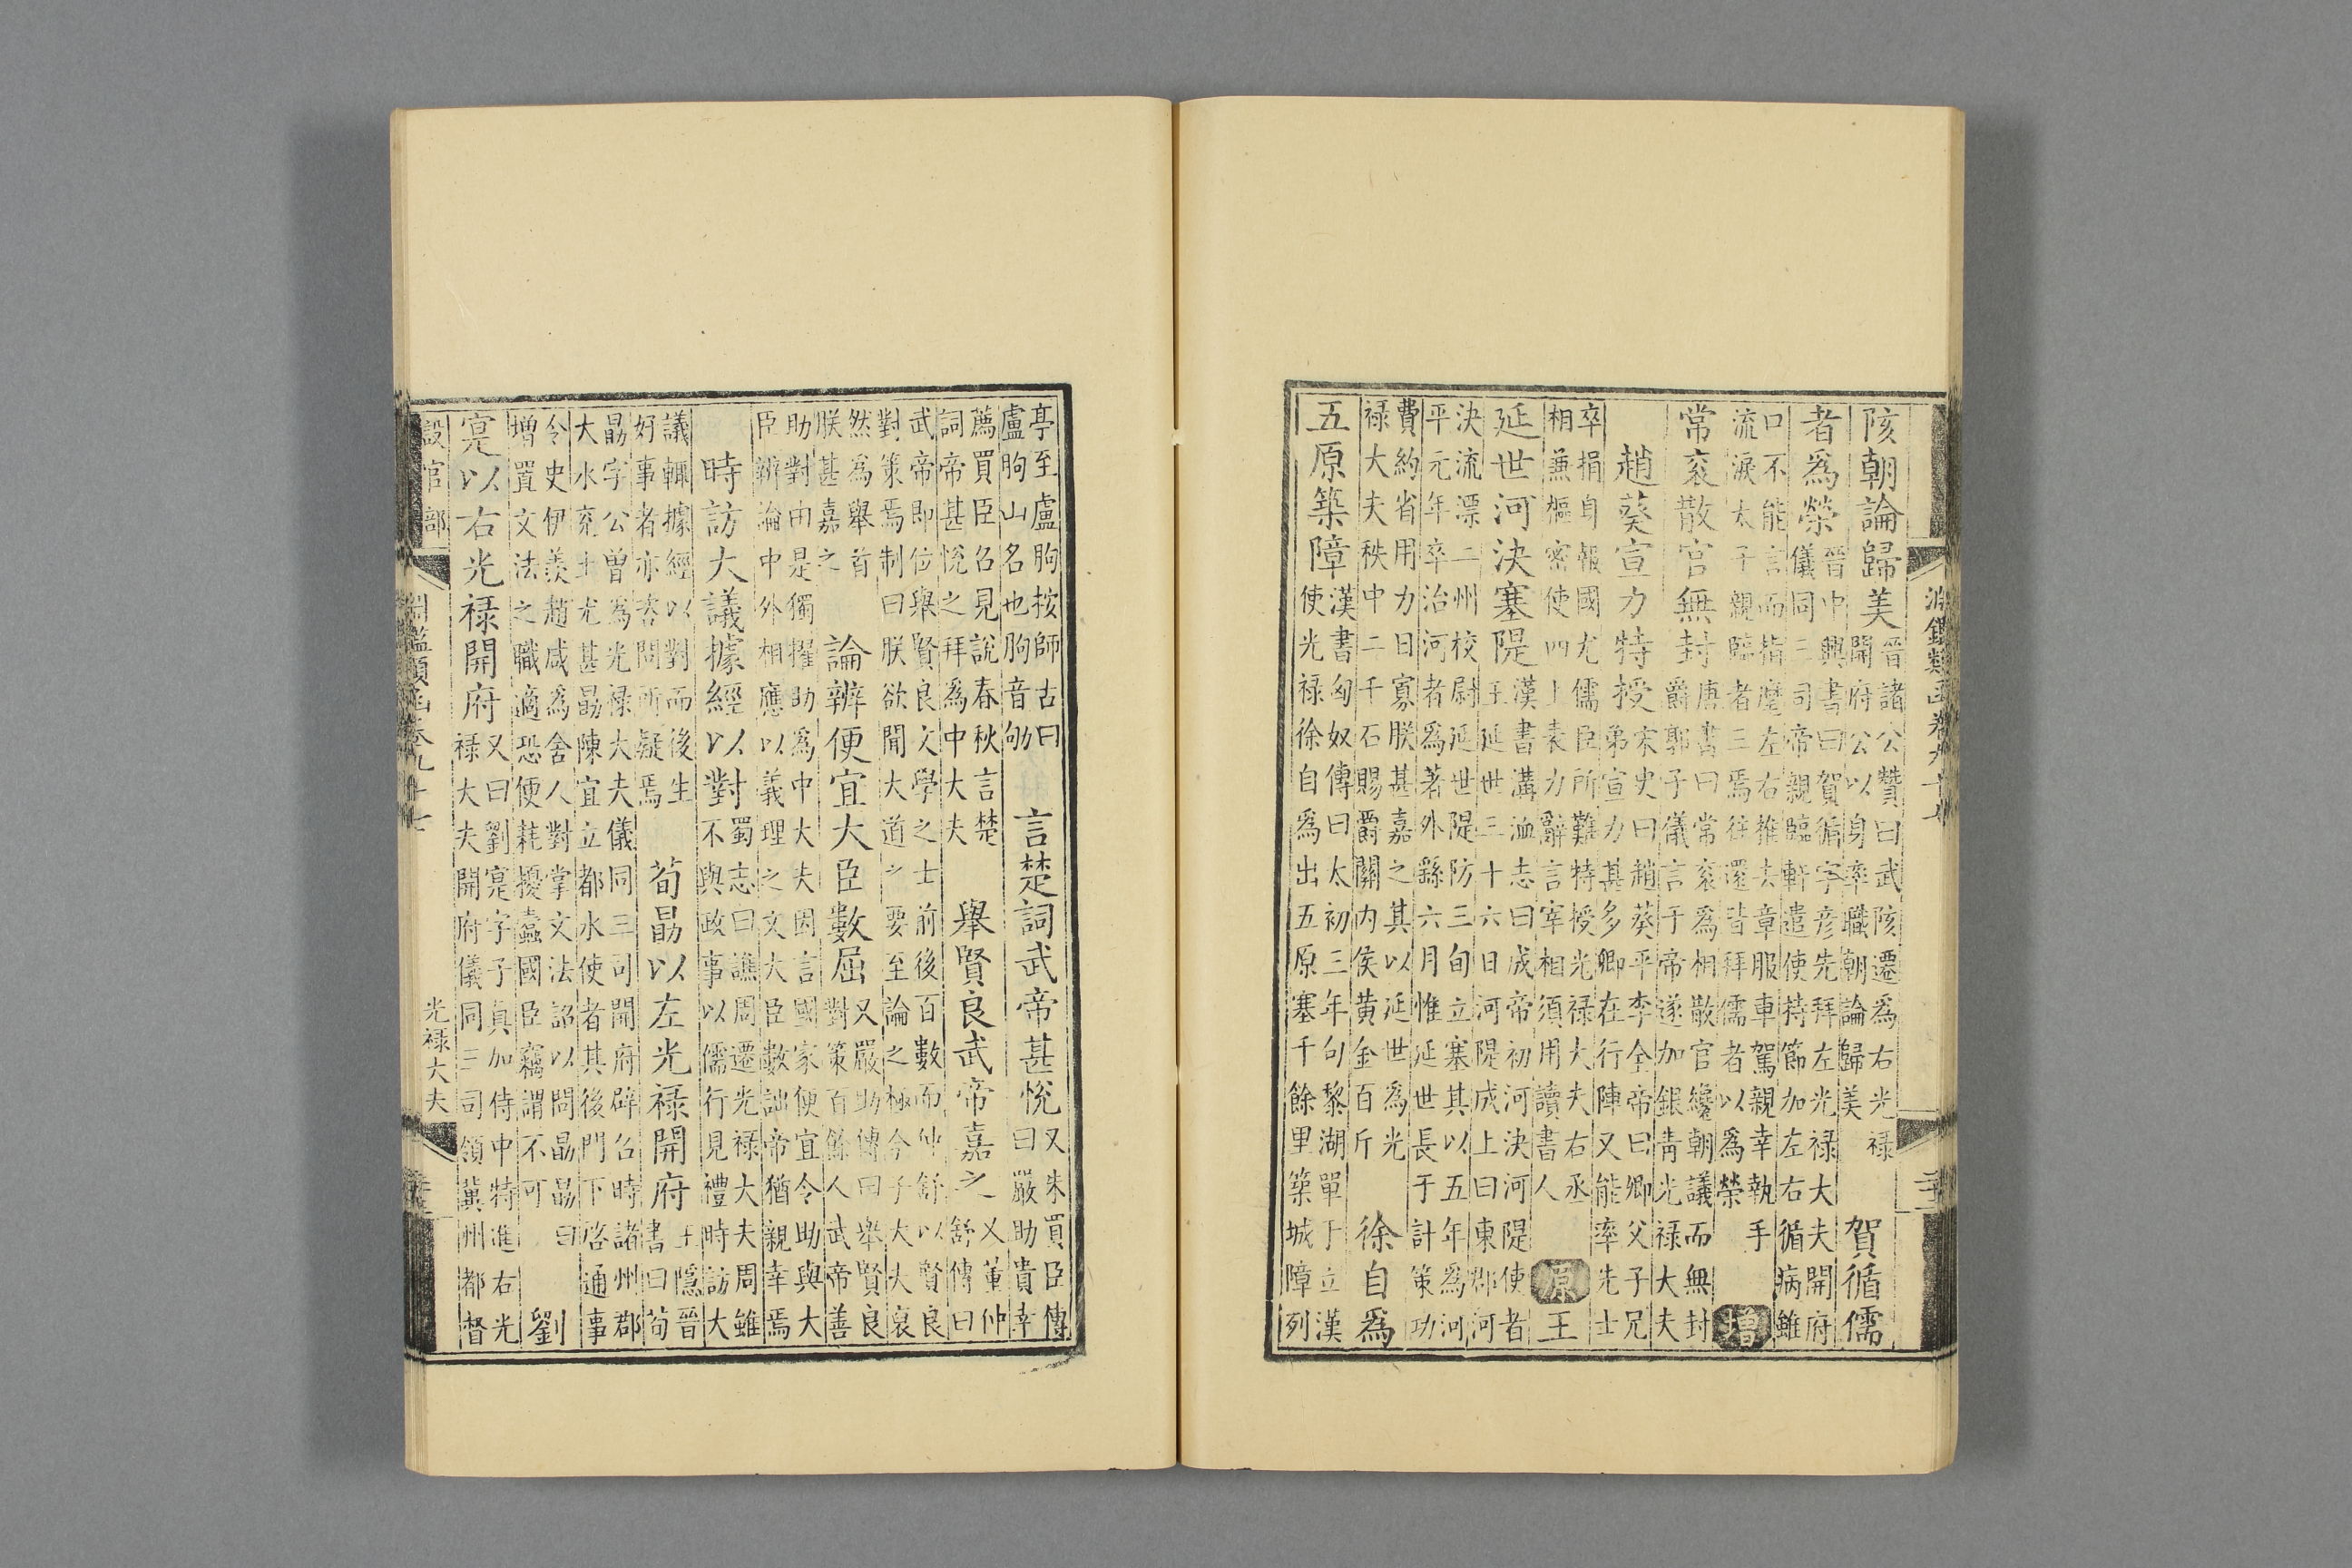 淵鑑類函卷九十七
陔朝論歸美
晉諸公贊曰武陔遷為右光祿
開府公以身率職朝論歸美
賀循儒
者爲榮
晉中興書曰賀循字彥先拜左光祿大夫開府
儀同三司帝親臨軒遣使持節加左右循病雖
口不能言而指麾左右推去章服車駕親幸執手
流淚太子親臨者三焉往還皆拜儒者以爲榮
增
常袞散官無封
唐書曰常袞爲相散官纔朝議而無封
爵郭子儀言于帝遂加銀青光祿大夫
趙葵宣力特授
宋史曰趙葵平李全帝曰卿父子兄
弟宣力甚多卿在行陣又能率先士
卒捐身報國尤儒臣所難特授光祿大夫右丞
相兼樞密使四上表力辭言宰相須用讀書人
原
王
延世河決塞隄
漢書溝洫志曰成帝初河決河隄使者
王延世三十六日河隄成上曰東郡河
決流漂二州校尉延世隄防三旬立塞其以五年爲河
平元年卒治河者爲著外繇六月惟延世長于計策功
費約省用力日寡朕甚嘉之其以延世爲光
祿大夫秩中二千石賜爵關内侯黃金百斤
徐自爲
五原築障
漢書匈奴傳曰太初三年句黎湖單于立漢
使光祿徐自爲出五原塞千餘里築城障列
亭至盧朐按師古曰
盧朐山名也朐音劬
言楚詞武帝甚悅
又朱買臣傳
曰嚴助貴幸
薦買臣召見說春秋言楚
詞帝甚悅之拜爲中大夫
舉賢良武帝嘉之
又董仲
舒傳曰
武帝即位舉賢良文學之士前後百數而仲舒以賢良
對策焉制曰朕欲聞大道之要至論之極今子大大裒
然爲舉首
朕甚嘉之
論辨便宜大臣數屈
又嚴助傳曰舉賢良
對策百餘人武帝善
助對由是獨擢助爲中大夫因言國家便宜令助與大
臣辨論中外相應以義理之文大臣數詘帝猶親幸焉
時訪大議據經以對
蜀志曰譙周遷光祿大夫周雖
不與政事以儒行見禮時訪大
議輒據經以對而後生
好事者亦咨問所疑焉
荀勗以左光祿開府
王隱晉
書曰荀
勗字公曾爲光祿大夫儀同三司開府辟召時諸州郡
大水兗土尤甚勗陳宜立都水使者其後門下啓通事
令史伊羨趙咸爲舍人對掌文法詔以問勗勗曰
增置文法之職適恐便耗擾蠹國臣竊謂不可
劉
寔以右光祿開府
又曰劉寔字子真加侍中特進右光
祿大夫開府儀同三司領冀州都督
設官部
淵鑑類函卷九十七
光祿大夫